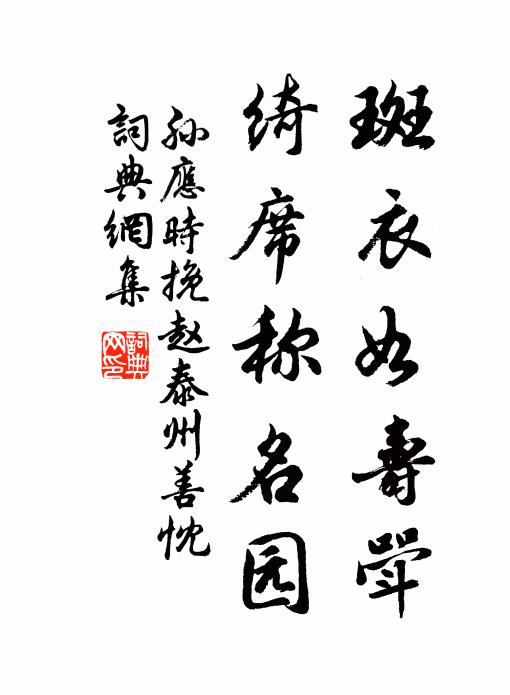 斑衣如寿斝
绮席称名园
孙應時挽赵泰州善忱
詞典網集
詞典网印